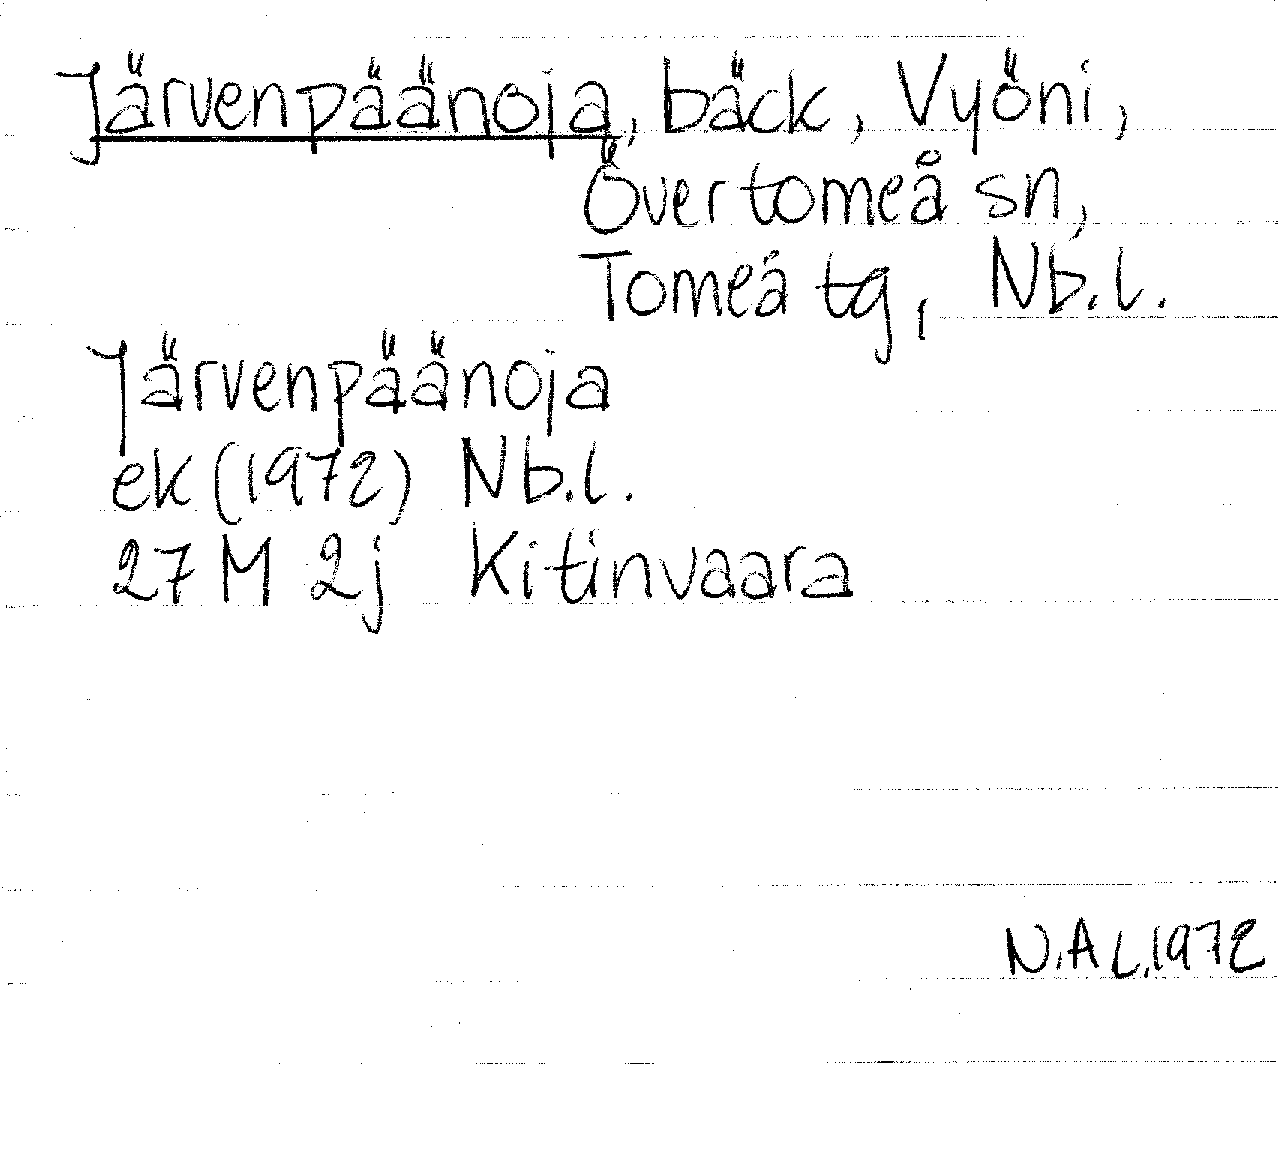 Järvenpäänoja, bäck, Vyöni,
Övertorneå sn,
Torneå tg, Nb.l.
Järvenpäänoja
ek (1972) Nb.l.
27 M 2j Kitinvaara
N.A L.1972